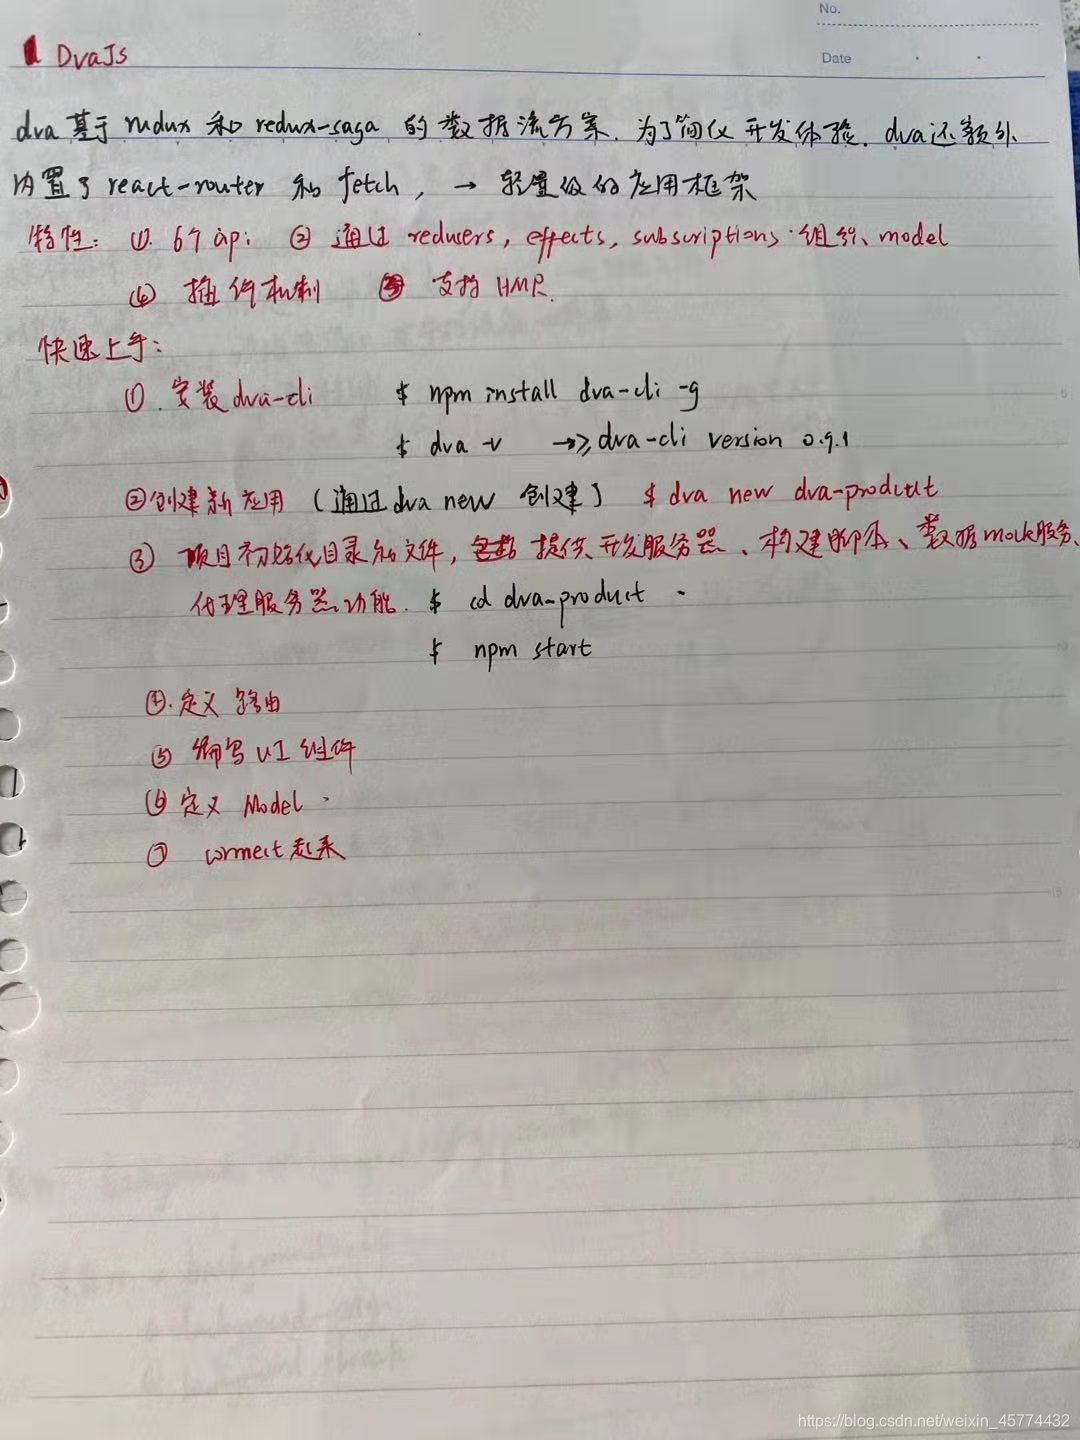 No.
Date
DvaJs
dva 基于 redux 和 redux-saga 的数据流方案. 为了简化开发体验. dva还额外
内置了 react-router 和 fetch, → 轻量级的应用框架
特性: ①. 6个api ② 通过 reducers, effects, subscriptions 组织 model
④ 插件机制 ⑤ 支持 HMR.
快速上手:
①. 安装 dva-cli $ npm install dva-cli -g
$ dva -v →> dva-cli version 0.9.1
②创建新应用 (通过dva new 创建) $ dva new dva-product
③ 项目初始化目录和文件, 提供开发服务器、构建脚本、数据mock服务、
代理服务器功能. $ cd dva-product
$ npm start
④. 定义 路由
⑤ 编写 UI 组件
⑥ 定义 Model
⑦ connect 起来
https://blog.csdn.net/weixin_45774432